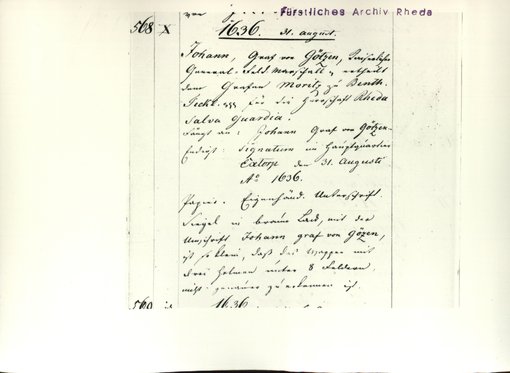 von
Fürstliches Archiv Rheda
568 X 1636. 31. august.
Johann, Graf von Götzen, Kaiserlicher
General-Feld Marschall, ertheilt
dem Grafen Moritz zu Benth.
Teckl. für die Herrschaft Rheda
Salva Guardia.
Fängt an: Johann Graf von Götzen
Endigt: Signatum im Hauptquartier
den 31. Augusti
Aº 1636.
Papier. Eigenhänd. Unterschrift.
Siegel in braun Lack, mit der
Umschrift Johann graf von Götzen,
ist so klein, daß das Wappen mit
drei Helmen unter 8 Feldern
nicht genauer zu erkennen ist.
569 1636.